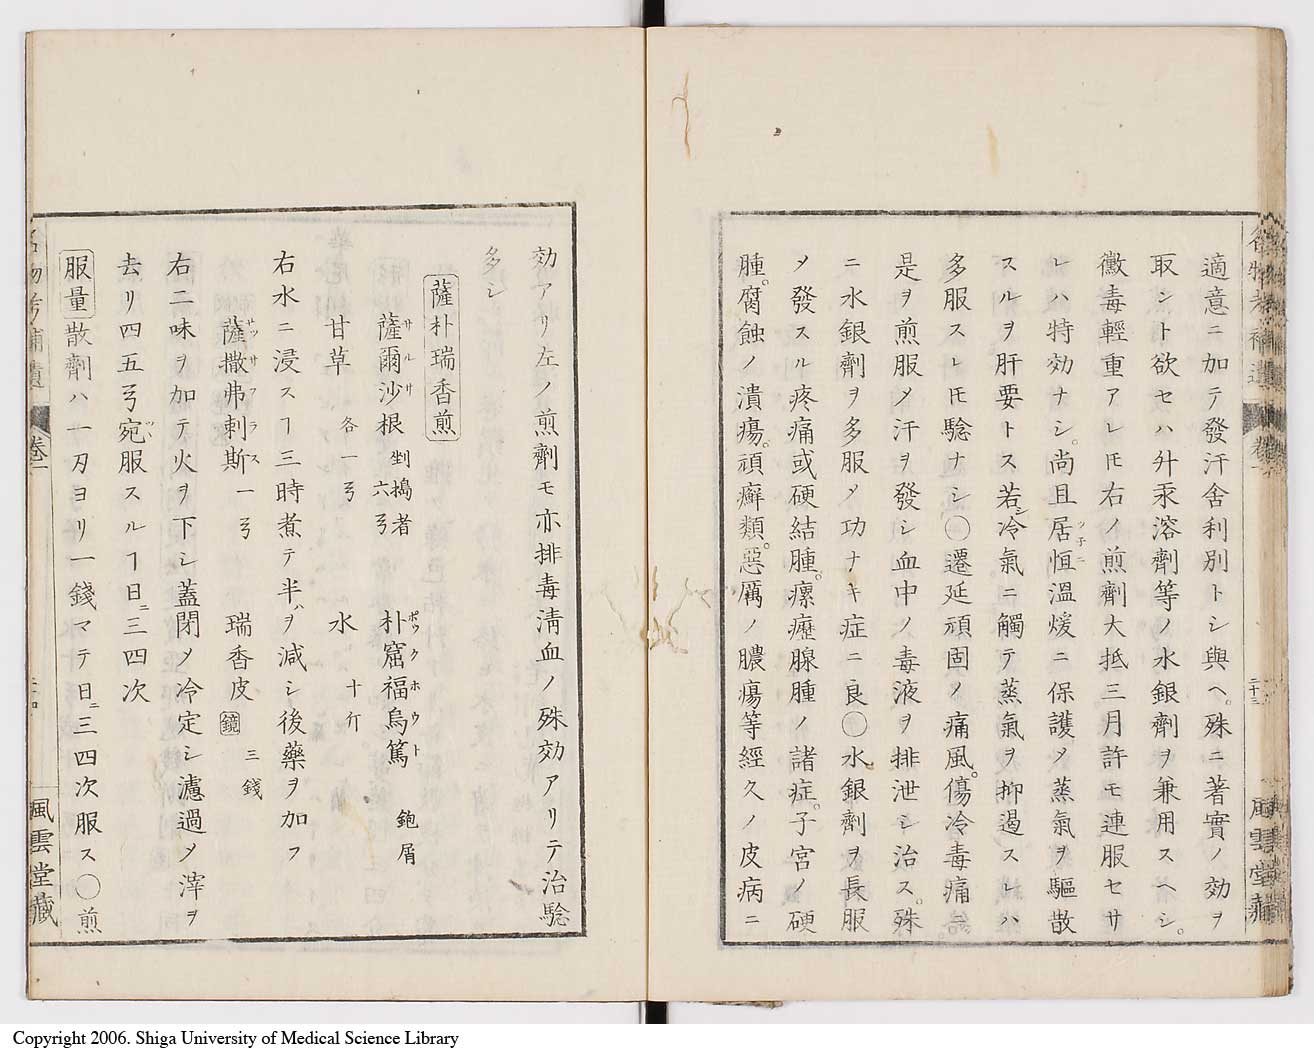 適意ニ加テ發汗舍利別トシ與ヘ。殊ニ著實ノ効ヲ
取ント欲セハ升汞溶劑等ノ水銀劑ヲ兼用スヘシ。
黴毒輕重アレ𪜈右ノ煎劑大抵三月許モ連服セサ
レハ特効ナシ。尚且居恒溫煖ニ保護〆蒸氣ヲ驅散
スルヲ肝要トス若シ冷氣ニ觸テ蒸氣ヲ抑遏スレハ
多服スレ𪜈驗ナシ〇遷延頑固ノ痛風。傷冷毒痛ニ
是ヲ煎服〆汗ヲ發シ血中ノ毒液ヲ排泄シ治ス。殊
ニ水銀劑ヲ多服〆功ナキ症ニ良〇水銀劑ヲ長服
〆發スル疼痛或硬結腫。瘰癧腺腫ノ諸症。子宮ノ硬
腫。腐蝕ノ潰瘍。頑癬類。惡厲ノ膿瘍等經久ノ皮病ニ
風雲堂藏
効アリ左ノ煎劑モ亦排毒淸血ノ殊効アリテ治驗
多シ
薩朴瑞香煎
薩爾沙根 サルサ 剉搗者 六弓 朴窟福烏篤 ポックホウト 鉋屑
甘草 各一弓 水 十斤
右水ニ浸スヿ三時煮テ半ハヲ減シ後藥ヲ加フ
薩撒弗剌斯 サッサフラス 一弓 瑞香皮 鏡 三錢
右二味ヲ加テ火ヲ下シ蓋閉〆冷定シ濾過〆滓ヲ
去リ四五弓宛服スルヿ日ニ三四次
服量 散劑ハ一刃ヨリ一錢マテ日ニ三四次服ス〇煎
名物考補遺 卷一 風雲堂藏